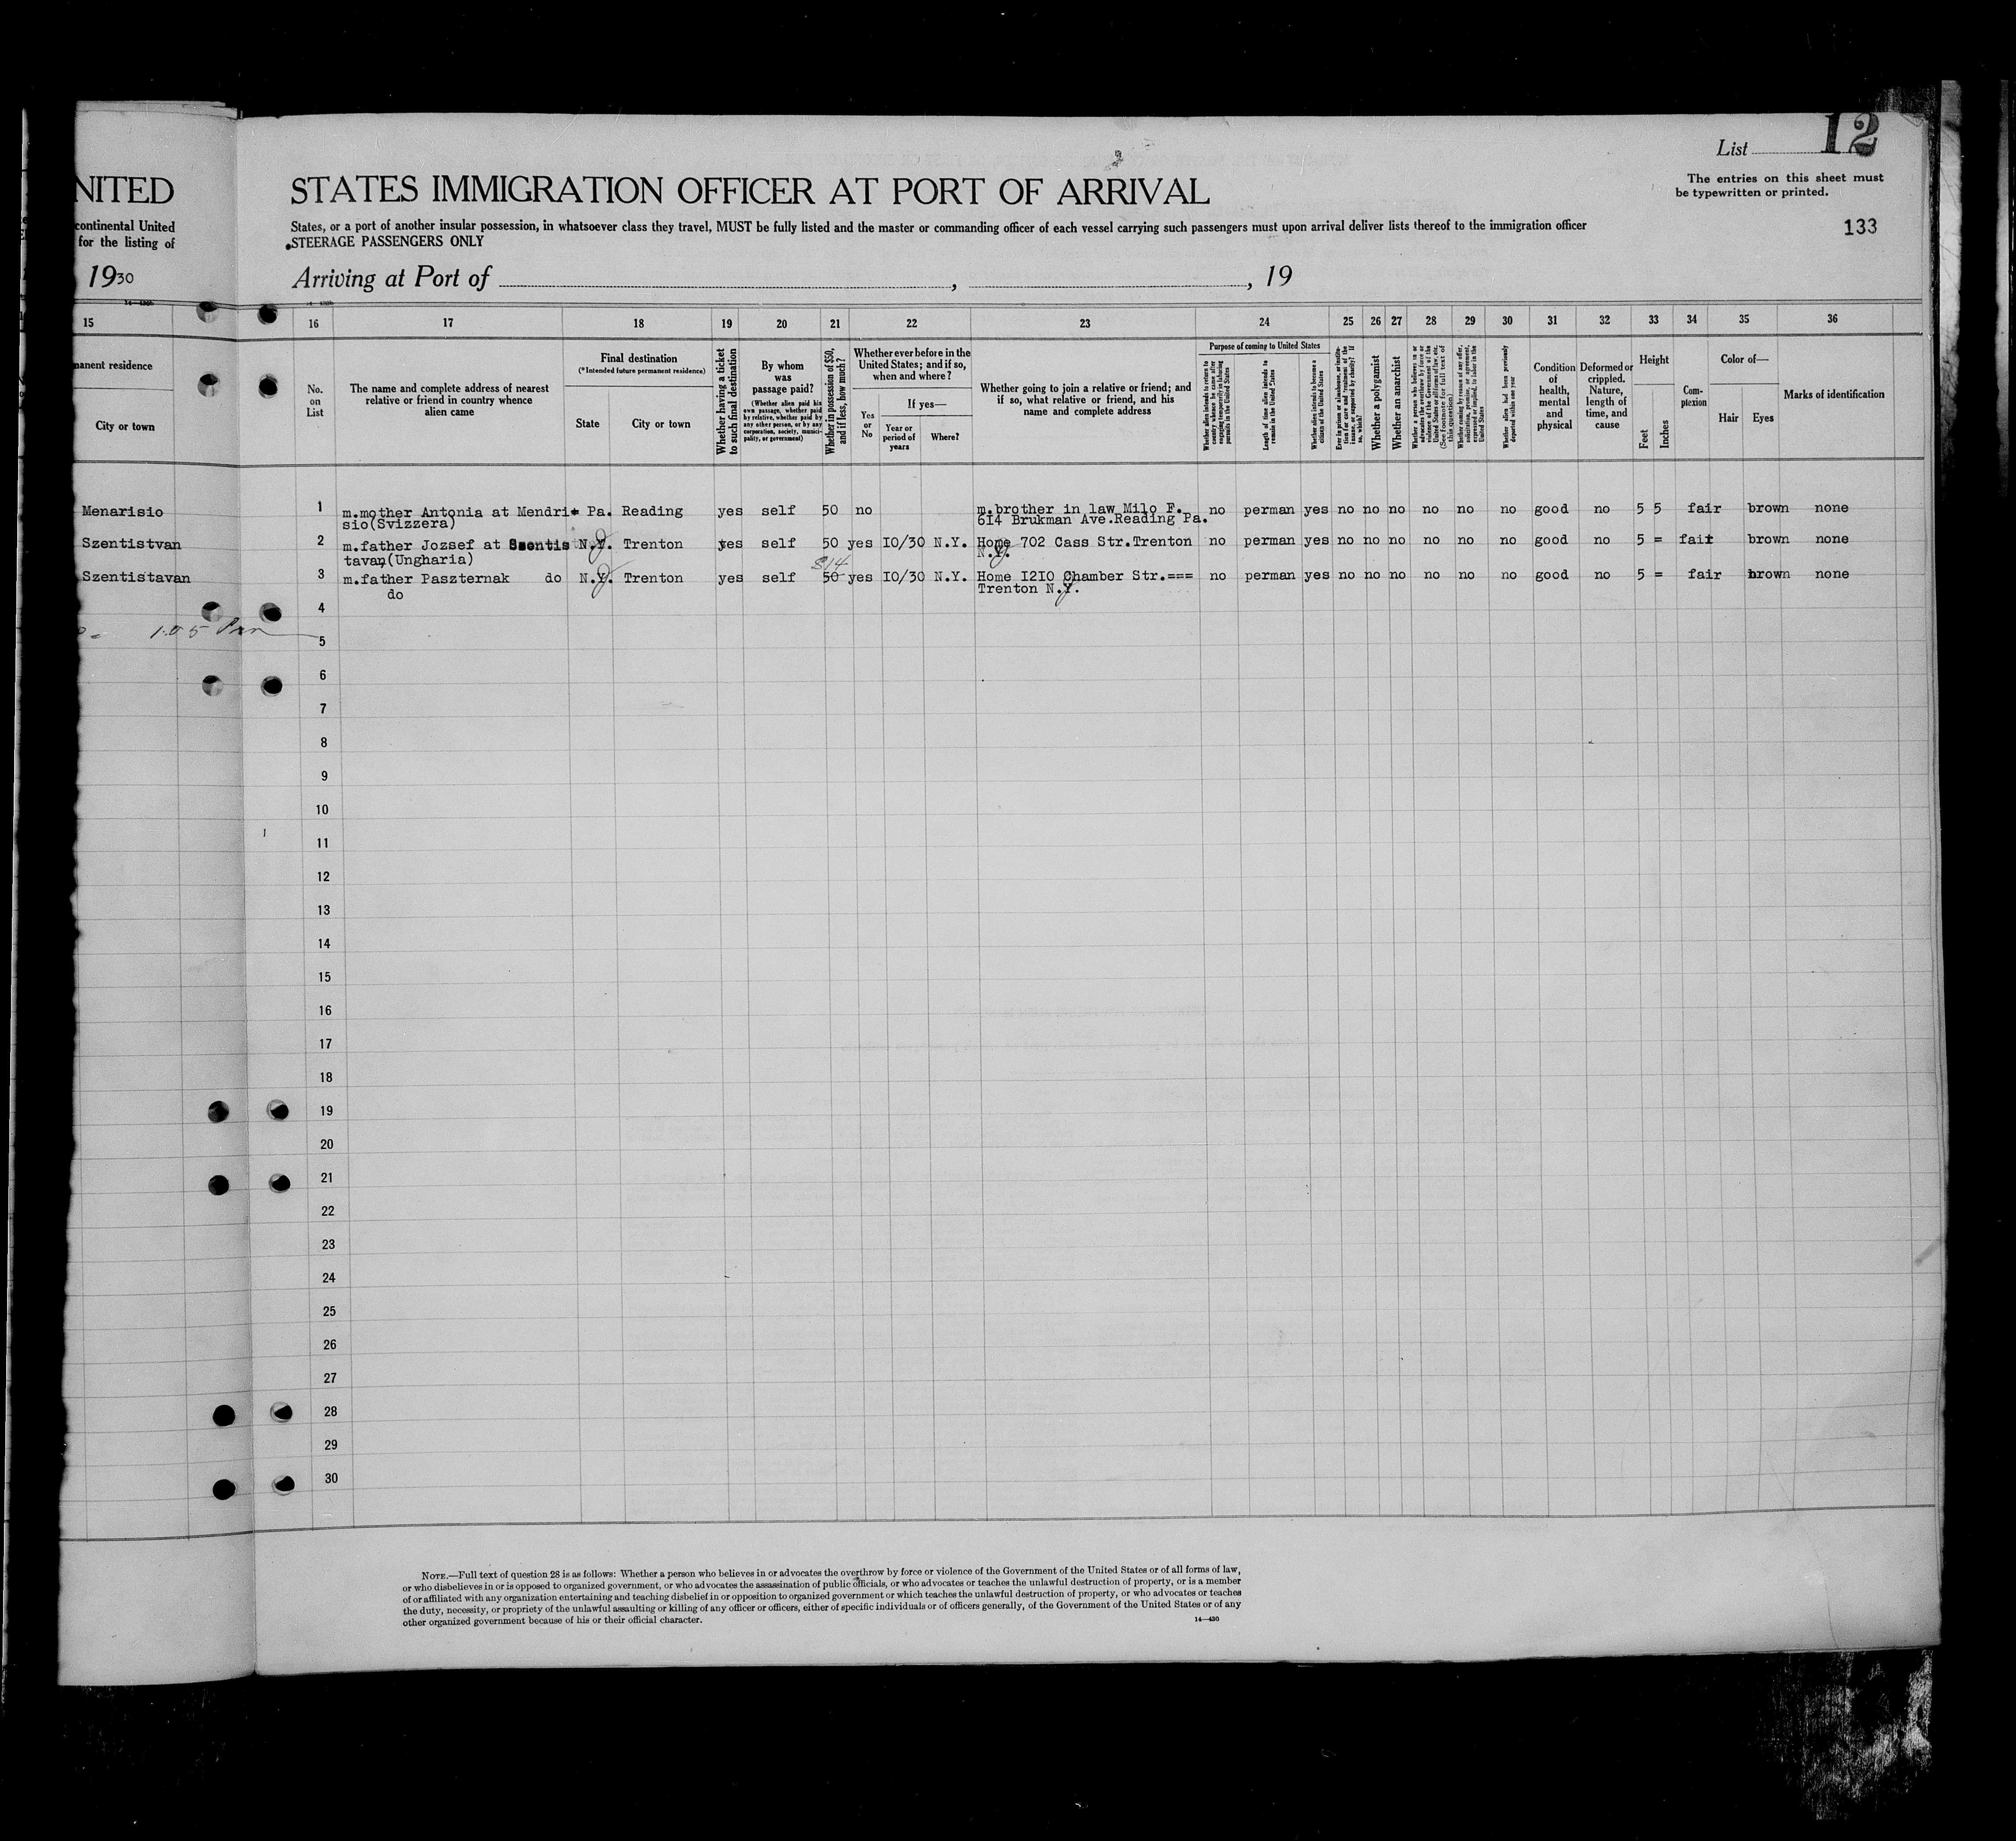 2
List 12
NITED STATES IMMIGRATION OFFICER AT PORT OF ARRIVAL
The entries on this sheet must
be typewritten or printed.
continental United
for the listing of
States, or a port of another insular possession, in whatsoever class they travel, MUST be fully listed and the master or commanding officer of each vessel carrying such passengers must upon arrival deliver lists thereof to the immigration officer
STEERAGE PASSENGERS ONLY
133
1930
Arriving at Port of , , 19
15 16 17 18 19 20 21 22 23 24 25 26 27 28 29 30 31 32 33 34 35 36
manent residence
City or town
No.
on
List
The name and complete address of nearest
relative or friend in country whence
alien came
Final destination
(*Intended future permanent residence)
State
City or town
Whether having a ticket
to such final destination
By whom
was
passage paid?
(Whether alien paid his
own passage, whether paid
by relative, whether paid by
any other person, or by any
corporation, society, munici-
pality, or government)
Whether in possession of $50,
and if less, how much?
Whether ever before in the
United States; and if so,
when and where?
Yes
or
No
If yes—
Year or
period of
years
Where?
Whether going to join a relative or friend; and
if so, what relative or friend, and his
name and complete address
Purpose of coming to United States
Whether alien intends to return to
country whence he came after
engaging temporarily in laboring
pursuits in the United States
Length of time alien intends to
remain in the United States
Whether alien intends to become a
citizen of the United States
Ever in prison or almshouse, or institu-
tion for care and treatment of the
insane, or supported by charity? If
so, which?
Whether a polygamist
Whether an anarchist
Whether a person who believes in or
advocates the overthrow by force or
violence of the Government of the
United States or all forms of law, etc.
(See footnote for full text of
this question)
Whether coming by reason of any offer,
solicitation, promise, or agreement,
expressed or implied, to labor in the
United States
Whether alien had been previously
deported within one year
Condition
of
health,
mental
and
physical
Deformed or
crippled.
Nature,
length of
time, and
cause
Height
Feet
Inches
Com-
plexion
Color of—
Hair
Eyes
Marks of identification
Menarisio 1 m.mother Antonia at Mendri Pa. Reading yes self 50 no m.brother in law Milo F. no perman yes no no no no no no good no 5 5 fair brown none
sio(Svizzera) 614 Brukman Ave.Reading Pa.
Szentistvan 2 m.father Jozsef at Szentis N.Y. Trenton yes self 50 yes IO/30 N.Y. Home 702 Cass Str.Trenton no perman yes no no no no no no good no 5 = fair brown none
tavan(Ungharia) N.Y.
$14
Szentistavan 3 m.father Paszternak do N.Y. Trenton yes self 50 yes IO/30 N.Y. Home I2IO Chamber Str.=== no perman yes no no no no no no good no 5 = fair brown none
do Trenton N.Y.
4
5
6
7
8
9
10
11
12
13
14
15
16
17
18
19
20
21
22
23
24
25
26
27
28
29
30
NOTE.—Full text of question 28 is as follows: Whether a person who believes in or advocates the overthrow by force or violence of the Government of the United States or of all forms of law,
or who disbelieves in or is opposed to organized government, or who advocates the assassination of public officials, or who advocates or teaches the unlawful destruction of property, or is a member
of or affiliated with any organization entertaining and teaching disbelief in or opposition to organized government or which teaches the unlawful destruction of property, or who advocates or teaches
the duty, necessity, or propriety of the unlawful assaulting or killing of any officer or officers, either of specific individuals or of officers generally, of the Government of the United States or of any
other organized government because of his or their official character.
14—430